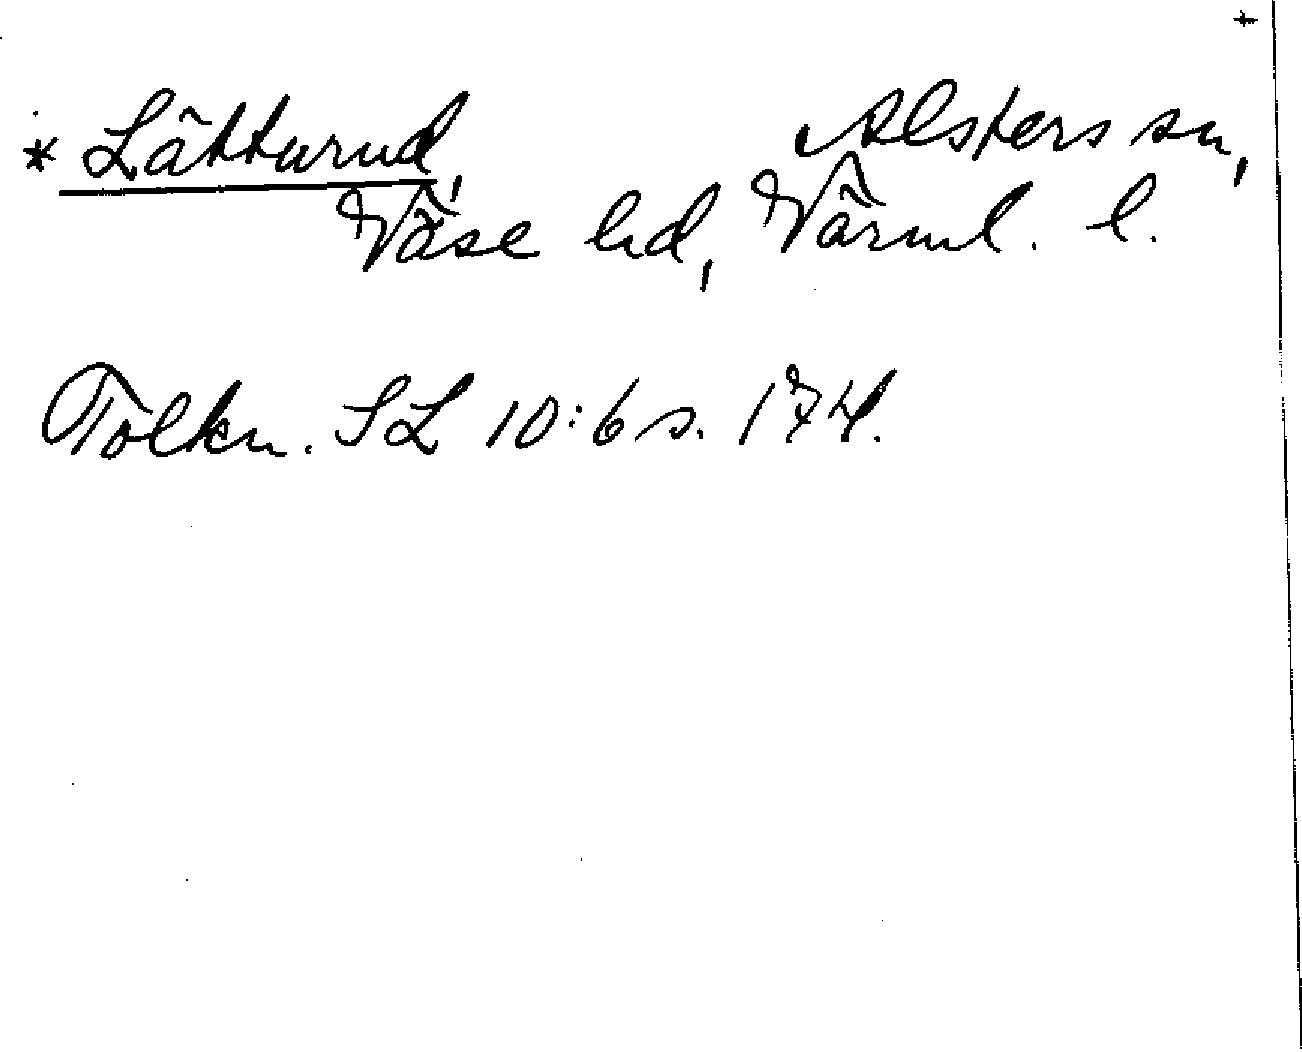 +
* Lätturud, Alsters sn,
Väse hd, Värml. l.
Tolkn. SL 10:6 s. 174.